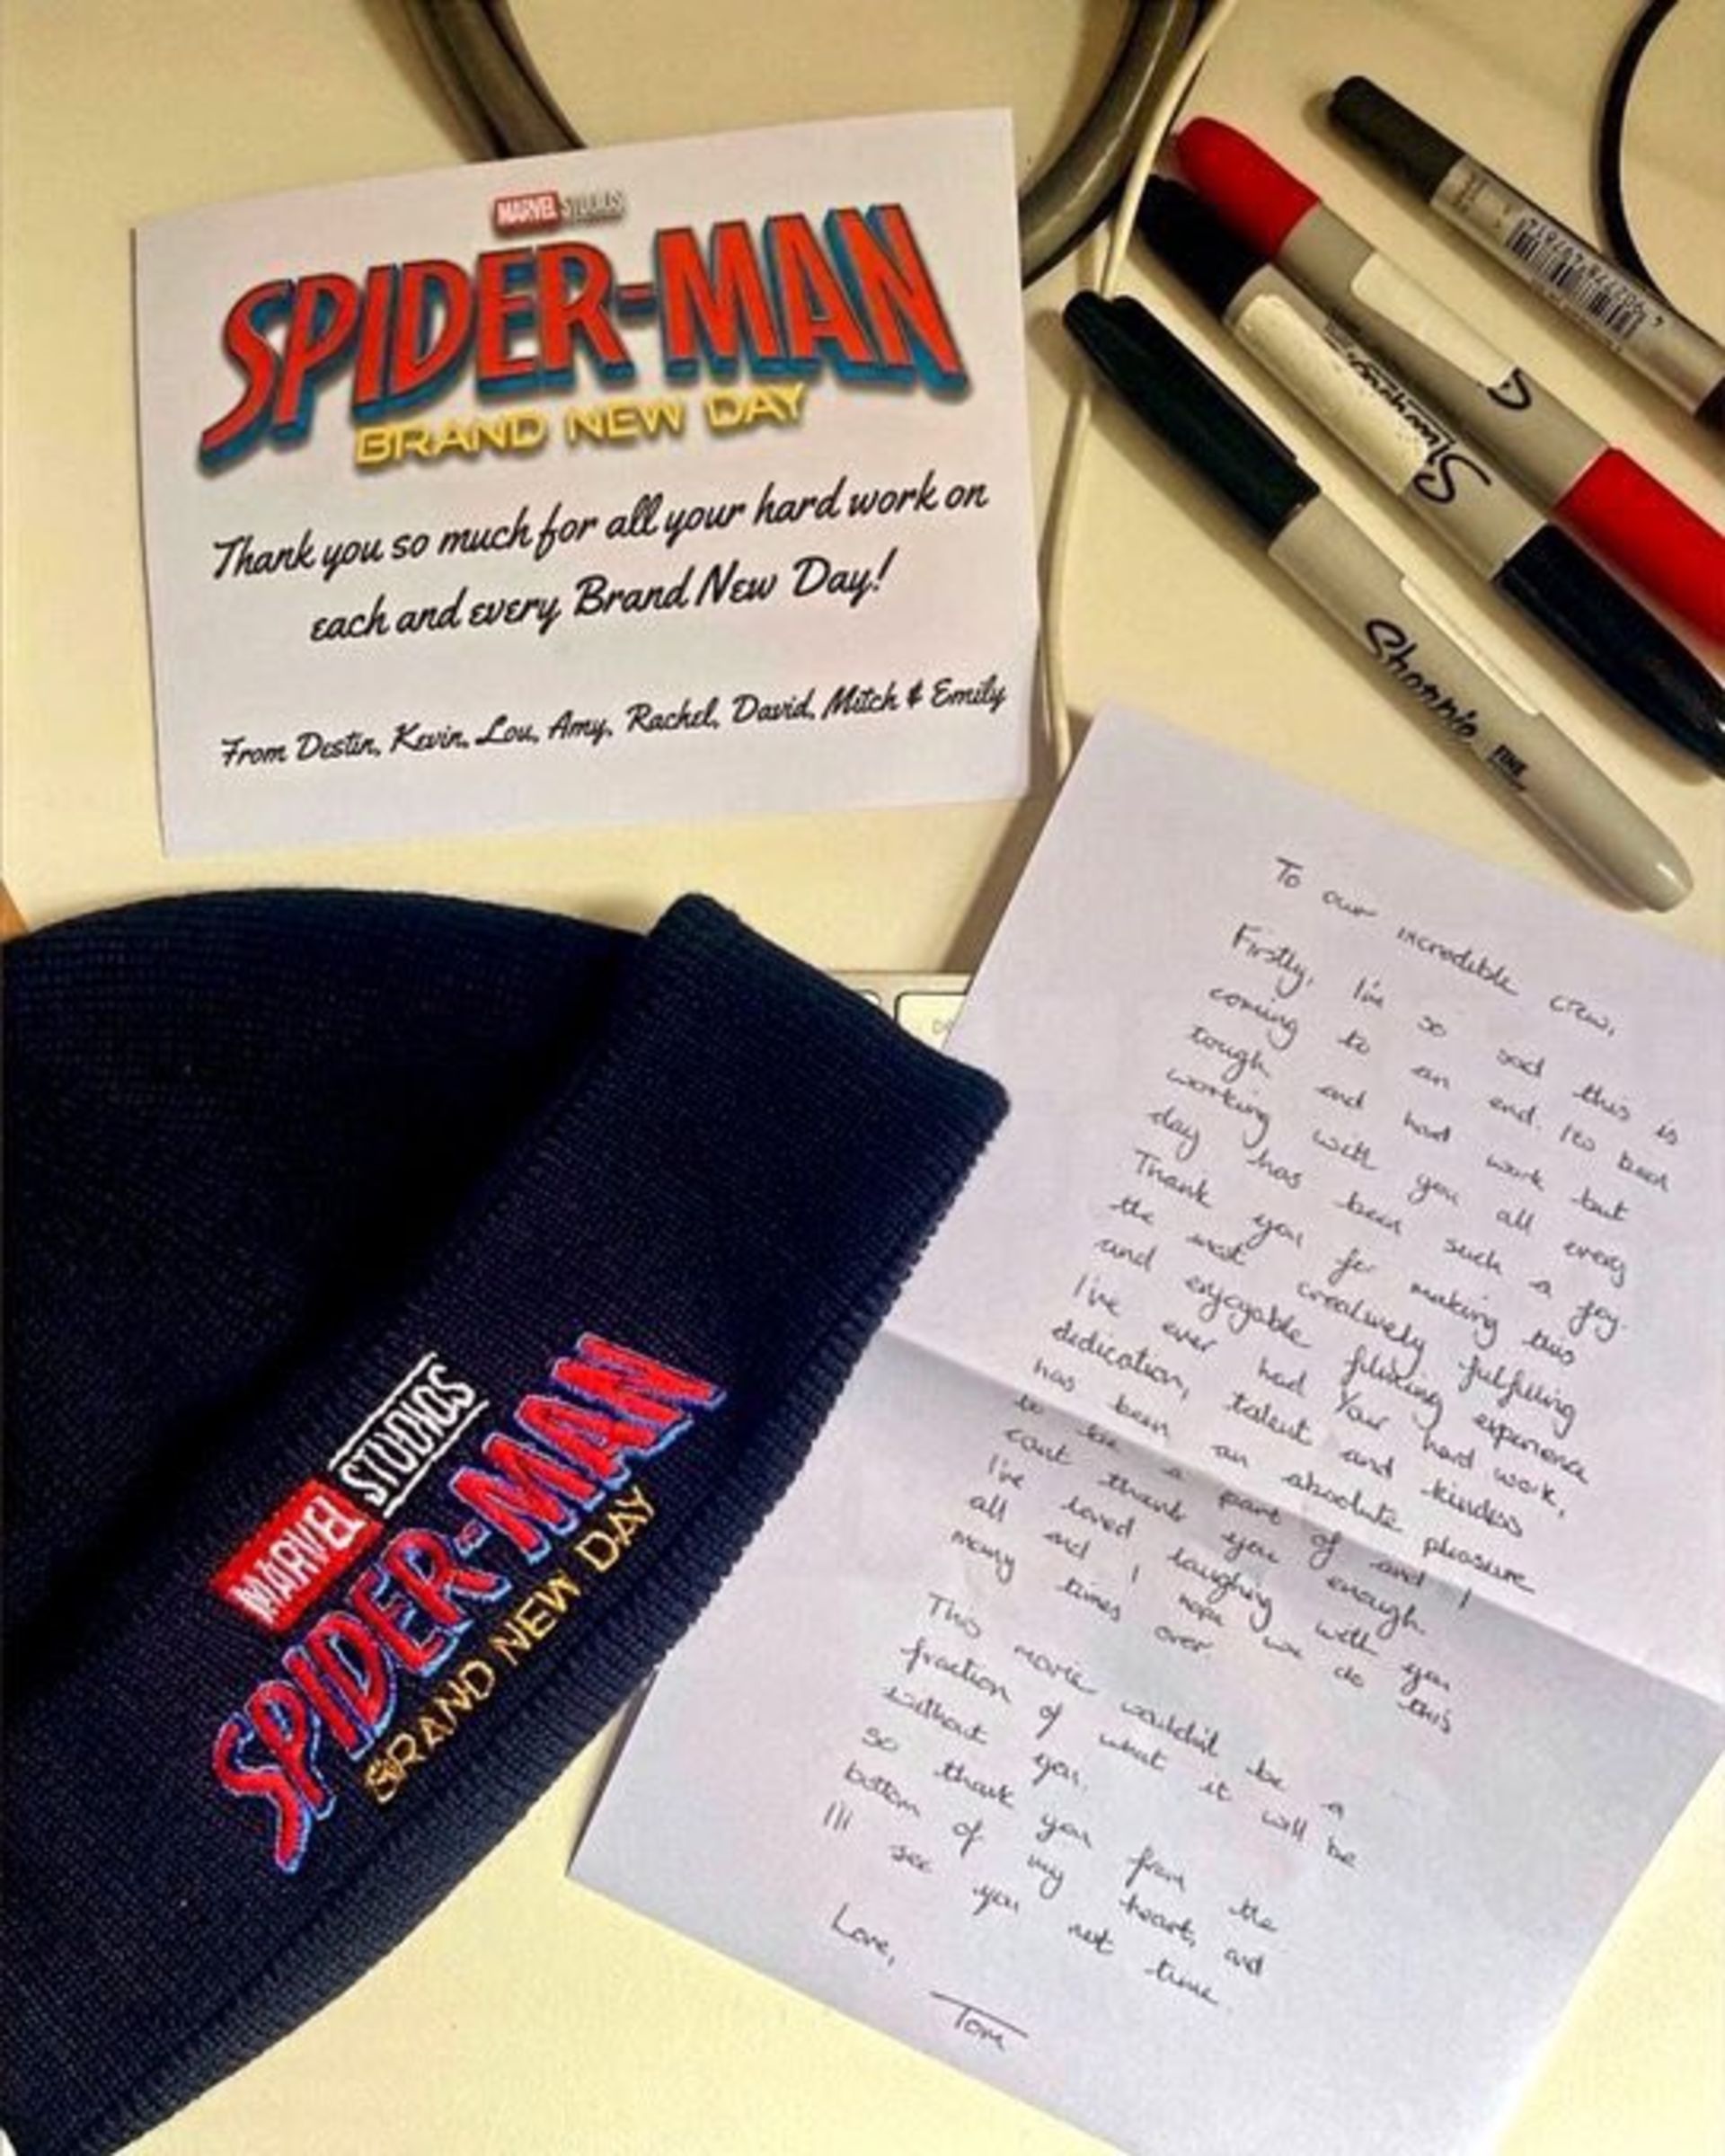 MARVEL STUDIOS
SPIDER-MAN
BRAND NEW DAY
Thank you so much for all your hard work on
each and every Brand New Day!
From Destin, Kevin, Lou, Amy, Rachel, David, Mitch & Emily
Sharpie
Sharpie FINE
To our incredible crew,
Firstly, I'm so sad this is
coming to an end. Its been
tough and hard work but
working with you all every
day has been such a joy.
Thank you for making this
the most creatively fulfilling
and enjoyable filming experience
I've ever had. Your hard work,
dedication, talent and kindess
has been an absolute pleasure
to be a part of and I
cant thank you enough.
I've loved laughing with you
all and I hope we do this
many times over
This movie wouldn't be a
fraction of what it will be
without you.
So thank you from the
bottom of my heart, and
I'll see you next time.
Love,
Tom
MARVEL STUDIOS
SPIDER-MAN
BRAND NEW DAY